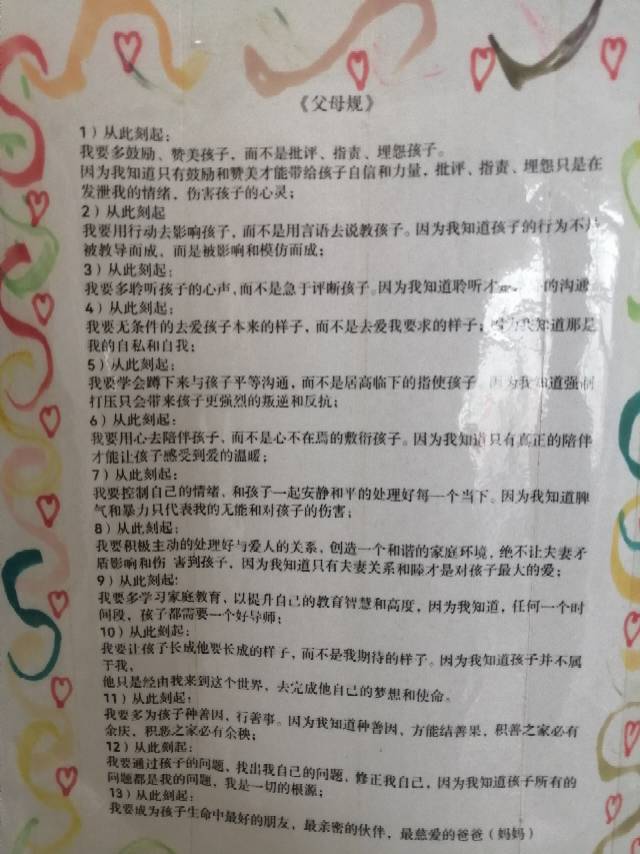 《父母规》
1）从此刻起：
我要多鼓励、赞美孩子，而不是批评、指责、埋怨孩子。
因为我知道只有鼓励和赞美才能带给孩子自信和力量，批评、指责、埋怨只是在
发泄我的情绪，伤害孩子的心灵；
2）从此刻起
我要用行动去影响孩子，而不是用言语去说教孩子。因为我知道孩子的行为不
被教导而成，而是被影响和模仿而成；
3）从此刻起：
我要多聆听孩子的心声，而不是急于评断孩子。因为我知道聆听才 的沟通
4）从此刻起：
我要无条件的去爱孩子本来的样子，而不是去爱我要求的样子；因为我知道那是
我的自私和自我；
5）从此刻起：
我要学会蹲下来与孩子平等沟通，而不是居高临下的指使孩子 因为我知道强制
打压只会带来孩子更强烈的叛逆和反抗；
6）从此刻起：
我要用心去陪伴孩子，而不是心不在焉的敷衍孩子。因为我知道只有真正的陪伴
才能让孩子感受到爱的温暖；
7）从此刻起：
我要控制自己的情绪，和孩子一起安静和平的处理好每一个当下。因为我知道脾
气和暴力只代表我的无能和对孩子的伤害；
8）从此刻起：
我要积极主动的处理好与爱人的关系，创造一个和谐的家庭环境，绝不让夫妻矛
盾影响和伤 害到孩子，因为我知道只有夫妻关系和睦才是对孩子最大的爱；
9）从此刻起：
我要多学习家庭教育，以提升自己的教育智慧和高度，因为我知道，任何一个时
间段，孩子都需要一个好导师；
10）从此刻起：
我要让孩子长成他要长成的样子，而不是我期待的样子。因为我知道孩子并不属
于我，
他只是经由我来到这个世界，去完成他自己的梦想和使命。
11）从此刻起：
我要多为孩子种善因，行善事。因为我知道种善因、方能结善果，积善之家必有
余庆，积恶之家必有余秧；
12）从此刻起：
我要通过孩子的问题，找出我自己的问题，修正我自己，因为我知道孩子所有的
问题都是我的问题，我是一切的根源；
13）从此刻起：
我要成为孩子生命中最好的朋友，最亲密的伙伴，最慈爱的爸爸（妈妈）